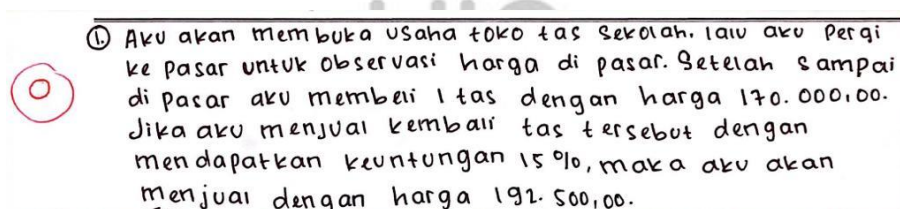 1. Aku akan membuka usaha toko tas sekolah. lalu aku pergi
ke pasar untuk observasi harga di pasar. Setelah sampai
di pasar aku membeli 1 tas dengan harga 170.000,00.
Jika aku menjual kembali tas tersebut dengan
mendapatkan keuntungan 15%, maka aku akan
menjual dengan harga 192.500,00.
0